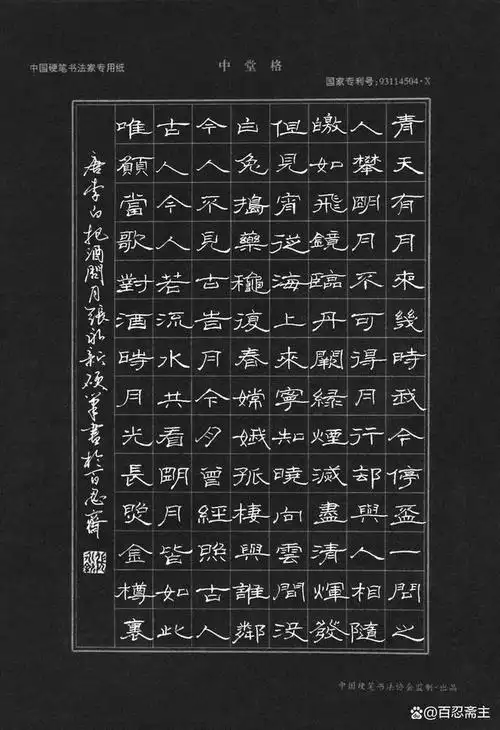 中国硬笔书法家专用纸
中堂格
国家专利号:93114504·X
青天有月來幾時我今停盃一問之
人攀明月不可得月行却與人相隨
皦如飛鏡臨丹闕緑煙滅盡清輝發
但見宵從海上來寧知曉向雲間没
白兔搗藥穐復春嫦娥孤棲與誰鄰
今人不見古昔月今夕曾經照古人
古人今人若流水共看朙月皆如此
唯願當歌對酒時月光長照金樽裏
唐李白把酒問月張永新硬筆書於百忍齋
中国硬笔书法协会监制·出品
@百忍斋主